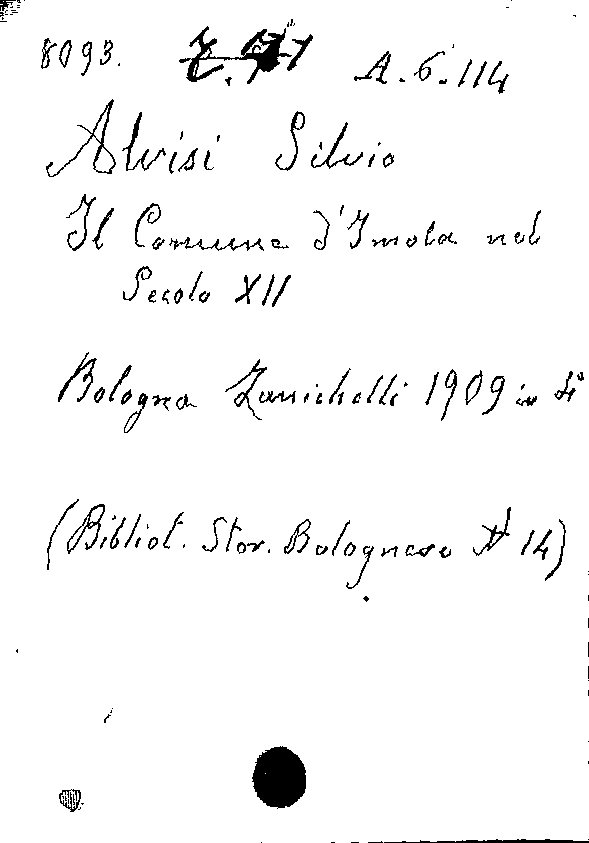 8093. A.6.114
Alvisi Silvio
Il Comune d'Imola nel
Secolo XII
Bologna Zanichelli 1909 in 4°
(Bibliot. Stor. Bolognese N 14)